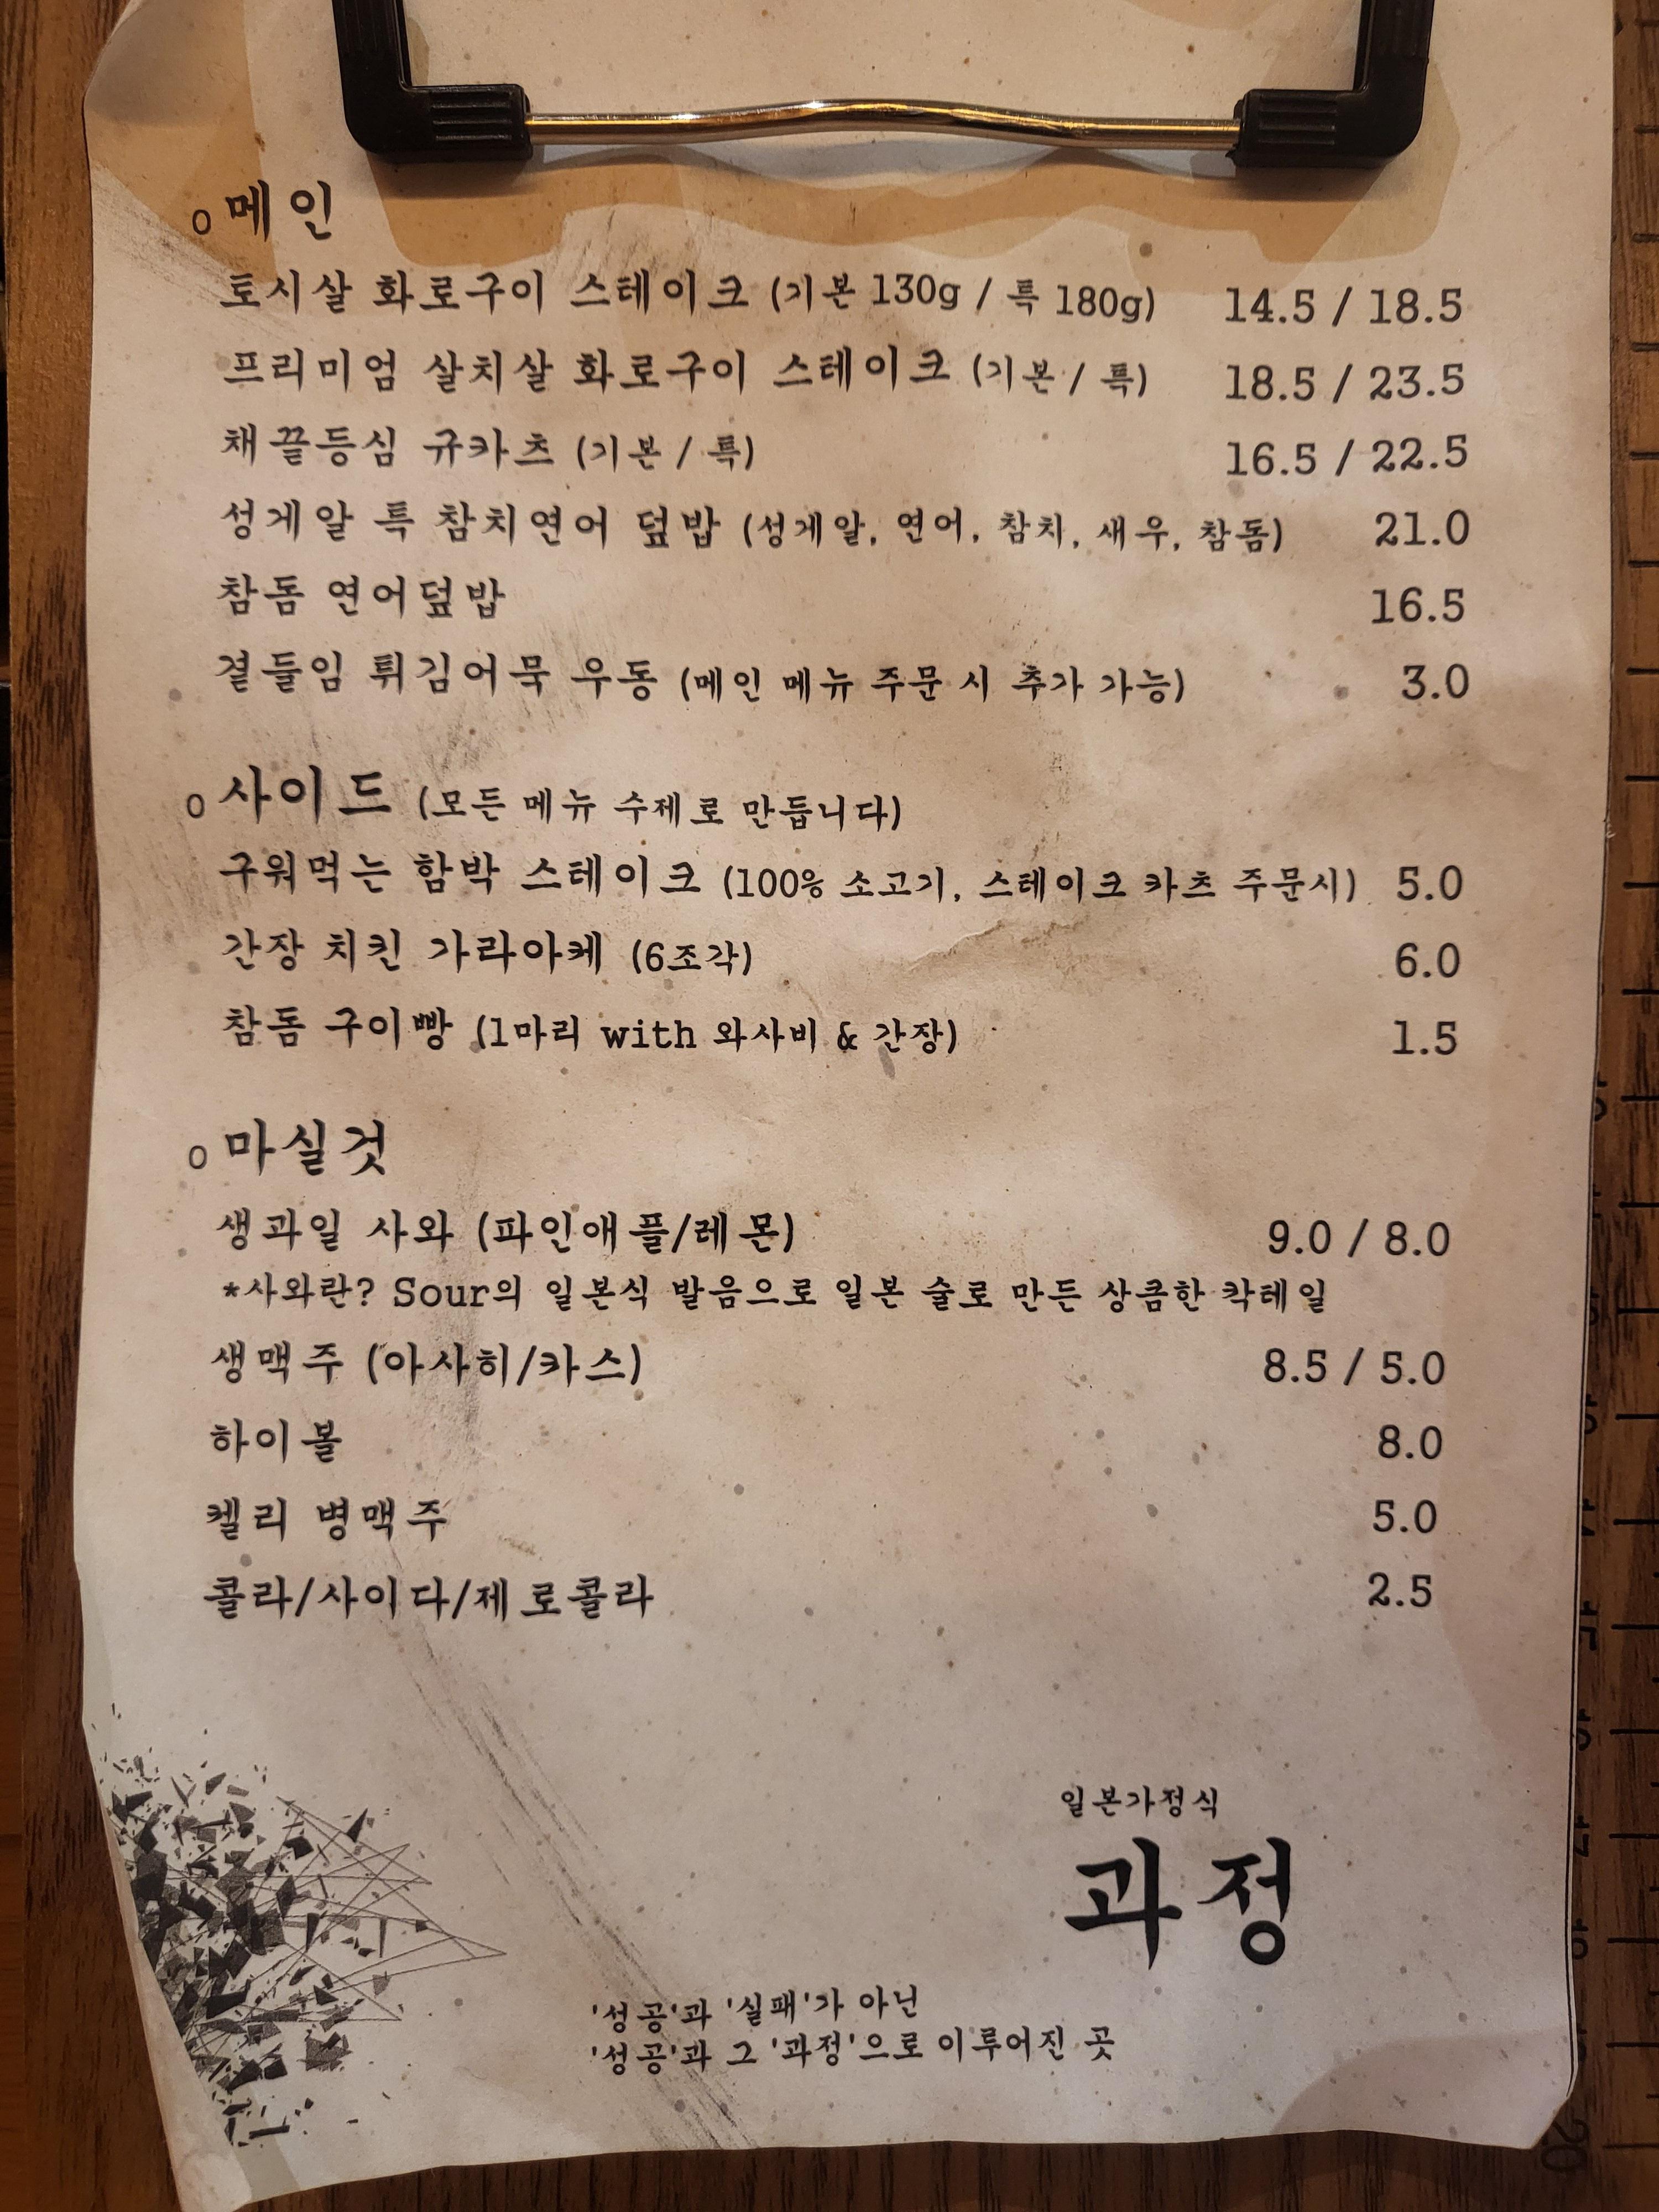 o 메인
토시살 화로구이 스테이크 (기본 130g / 특 180g) 14.5 / 18.5
프리미엄 살치살 화로구이 스테이크 (기본 / 특) 18.5 / 23.5
채끝등심 규카츠 (기본 / 특) 16.5 / 22.5
성게알 특 참치연어 덮밥 (성게알, 연어, 참치, 새우, 참돔) 21.0
참돔 연어덮밥 16.5
곁들임 튀김어묵 우동 (메인 메뉴 주문 시 추가 가능) 3.0
o 사이드 (모든 메뉴 수제로 만듭니다)
구워먹는 함박 스테이크 (100% 소고기, 스테이크 카츠 주문시) 5.0
간장 치킨 가라아케 (6조각) 6.0
참돔 구이빵 (1마리 with 와사비 & 간장) 1.5
o 마실것
생과일 사와 (파인애플/레몬) 9.0 / 8.0
*사와란? Sour의 일본식 발음으로 일본 술로 만든 상큼한 칵테일
생맥주 (아사히/카스) 8.5 / 5.0
하이볼 8.0
켈리 병맥주 5.0
콜라/사이다/제로콜라 2.5
일본가정식
과정
'성공'과 '실패'가 아닌
'성공'과 그 '과정'으로 이루어진 곳
20